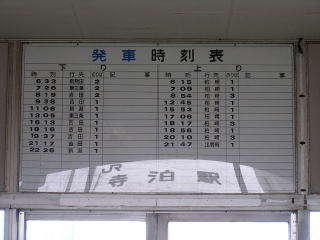 発車時刻表
下り 上り
時刻 行先 のりば 記事 時刻 行先 のりば 記事
6 33 2 6 15 柏崎 1
7 26 2 7 09 柏崎 1
8 19 吉田 2 8 54 柏崎 3
9 38 吉田 1 12 45 柏崎 1
11 06 1 15 52 柏崎 1
13 05 1 17 06 柏崎 1
16 13 吉田 1 18 17 柏崎 3
18 16 吉田 1 18 56 柏崎 1
19 37 吉田 1 20 10 柏崎 3
21 17 吉田 1 21 47 出雲崎 1
22 26 1
JR
寺泊駅